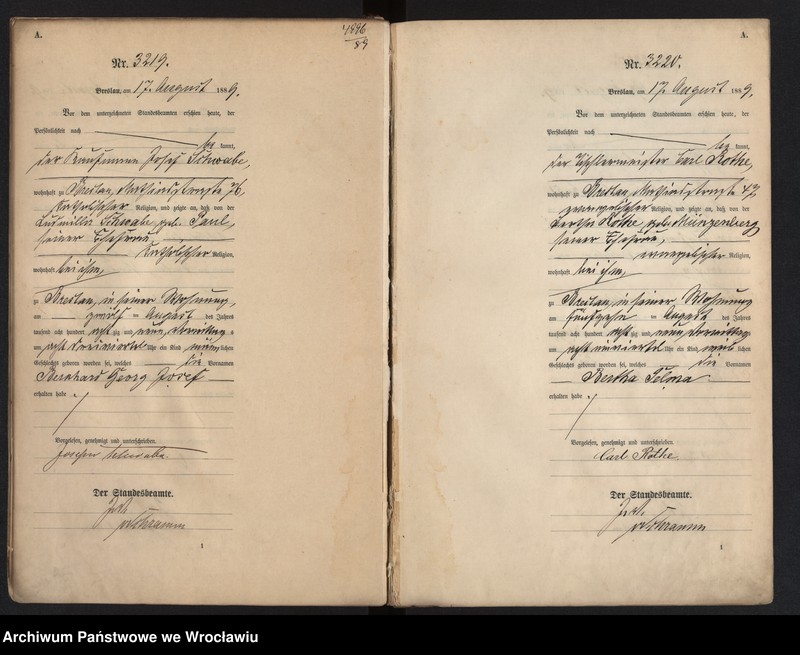 A.
4996
89
Nr. 3219.
Breslau, am 17. August 1889.
Vor dem unterzeichneten Standesbeamten erschien heute, der
Persönlichkeit nach
be kannt,
der Kaufmann Josef Schwabe,
wohnhaft zu Breslau, Mathiasstraße
katholischer Religion, und zeigte an, daß von der
Ludmilla Schwabe geb. Paul,
seiner Ehefrau,
katholischer Religion,
wohnhaft bei ihm,
zu Breslau, in seiner Wohnung,
am zwölf ten August des Jahres
tausend acht hundert acht zig und neun, Vormittag s
um acht dreiviertel Uhr ein Kind männ lichen
Geschlechts geboren worden sei, welches die Vornamen
Bernhard Georg Josef
erhalten habe
Vorgelesen, genehmigt und unterschrieben.
Josef Schwabe.
Der Standesbeamte.
Schramm
1
A.
Nr. 3220.
Breslau, am 17. August 1889.
Vor dem unterzeichneten Standesbeamten erschien heute, der
Persönlichkeit nach
be kannt,
der Tischlermeister Carl Rothe,
wohnhaft zu Breslau, Mathiasstraße
evangelischer Religion, und zeigte an, daß von der
Bertha Rothe geb. Münzenberg,
seiner Ehefrau,
evangelischer Religion,
wohnhaft bei ihm,
zu Breslau, in seiner Wohnung
am fünfzehn ten August des Jahres
tausend acht hundert acht zig und neun, Vormittag s
um acht einviertel Uhr ein Kind weib lichen
Geschlechts geboren worden sei, welches die Vornamen
Bertha Selma
erhalten habe
Vorgelesen, genehmigt und unterschrieben.
Carl Rothe.
Der Standesbeamte.
Schramm
1
Archiwum Państwowe we Wrocławiu